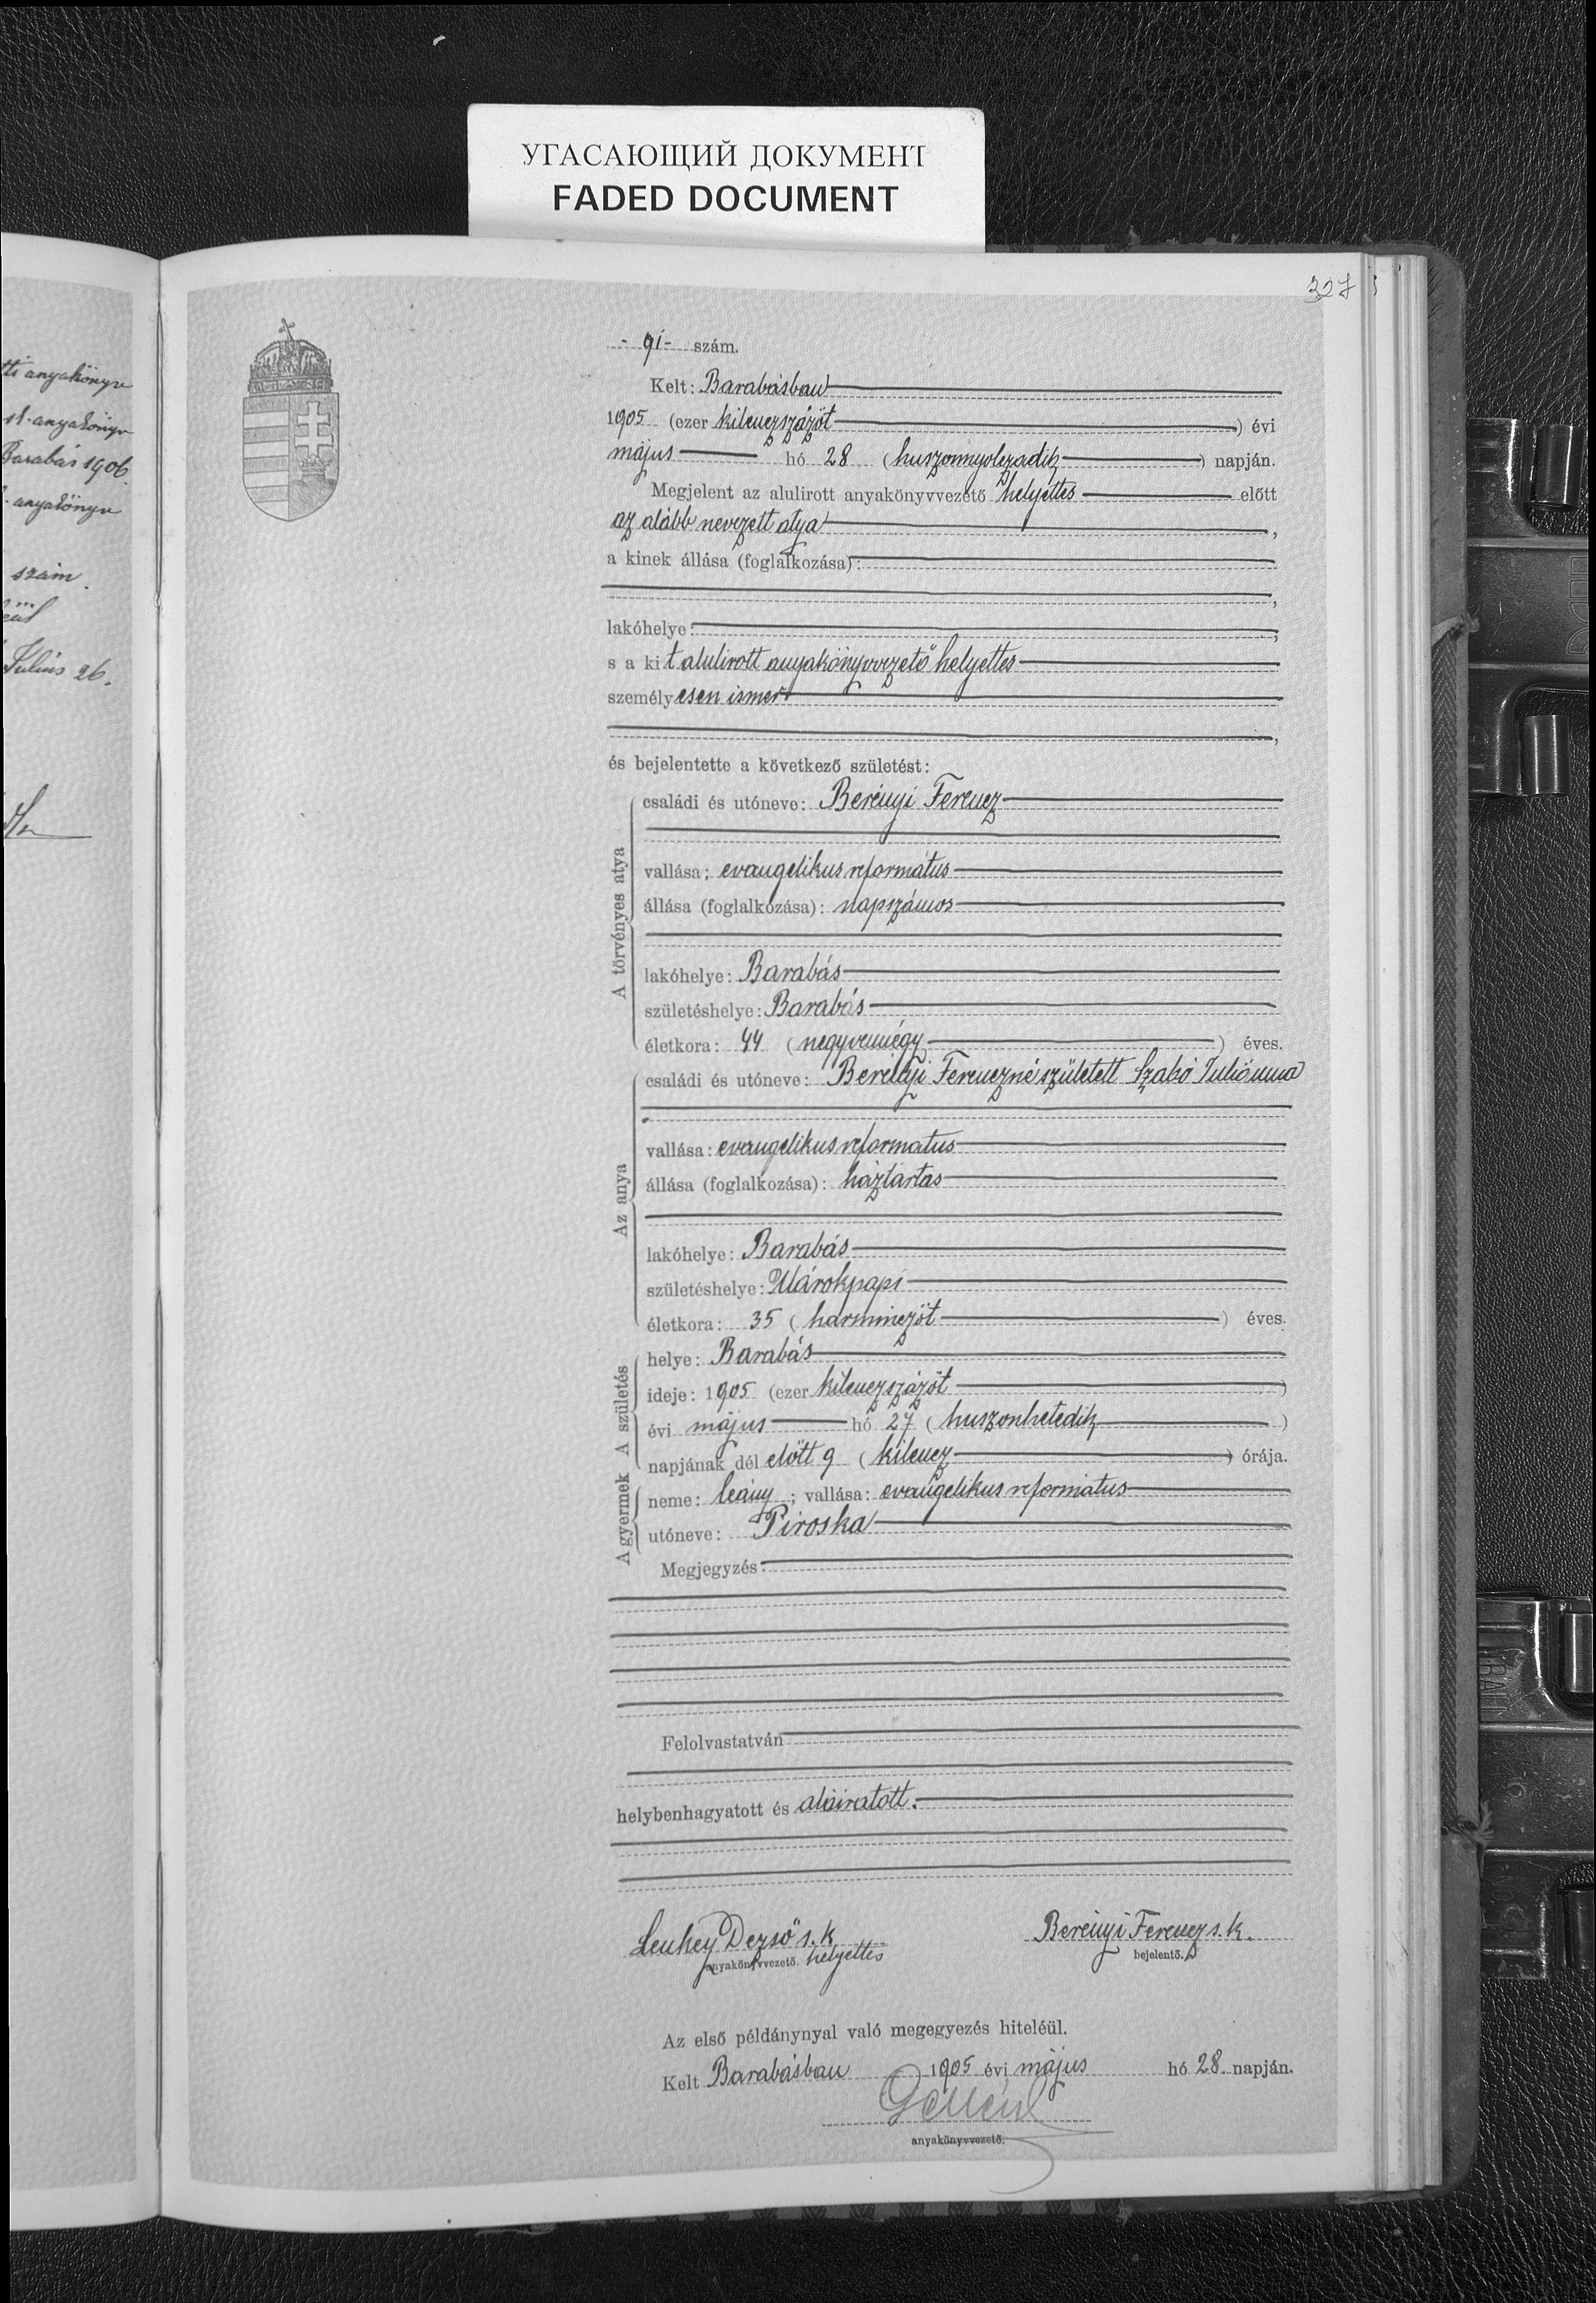 УГАСАЮЩИЙ ДОКУМЕНТ
FADED DOCUMENT
327
tti anyakönyv
anyakönyv
Barabás 1906.
anyakönyv
szám.
Julius 26.
- 91 - szám.
Kelt: Barabásban
1905 (ezer kilenczszázöt ) évi
május hó 28 (huszonnyolczadik ) napján.
Megjelent az alulirott anyakönyvvezető helyettes előtt
az alább nevezett atya ,
a kinek állása (foglalkozása):
,
lakóhelye: ,
s a kit alulirott anyakönyvvezető helyettes
személyesen ismer
,
és bejelentette a következő születést:
A törvényes atya
családi és utóneve: Berényi Ferencz
vallása: evangelikus református
állása (foglalkozása): napszámos
lakóhelye: Barabás
születéshelye: Barabás
életkora: 44 (negyvennégy ) éves.
Az anya
családi és utóneve: Berényi Ferenczné született Szabó Juliánna
vallása: evangelikus reformatus
állása (foglalkozása): háztartas
lakóhelye: Barabás
születéshelye: Márokpapi
életkora: 35 (harminczöt ) éves.
A születés
helye: Barabás
ideje: 1905 (ezer kilenczszázöt )
évi május hó 27 (huszonhetedik )
napjának dél előtt 9 (kilencz ) órája.
A gyermek
neme: leány ; vallása: evangelikus református
utóneve: Piroska
Megjegyzés:
Felolvastatván
helybenhagyatott és aláiratott.
Lenkey Dezső s. k. Berényi Ferencz s. k.
anyakönyvvezető. helyettes bejelentő.
Az első példánynyal való megegyezés hiteléül.
Kelt Barabásban 1905 évi május hó 28. napján.
anyakönyvvezető.